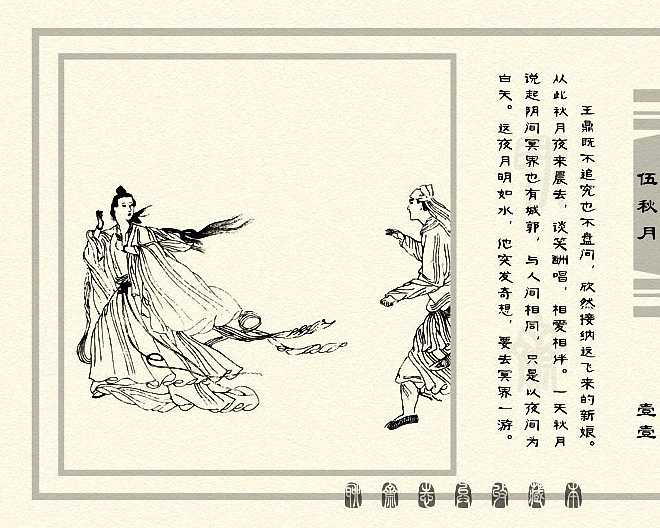 伍秋月
壹壹
王鼎既不追究也不盘问，欣然接纳这飞来的新娘。
从此秋月夜来晨去，谈笑酬唱，相爱相伴。一天秋月
说起阴间冥界也有城郭，与人间相同，只是以夜间为
白天。这夜月明如水，他突发奇想，要去冥界一游。
聊斋志异珍藏本